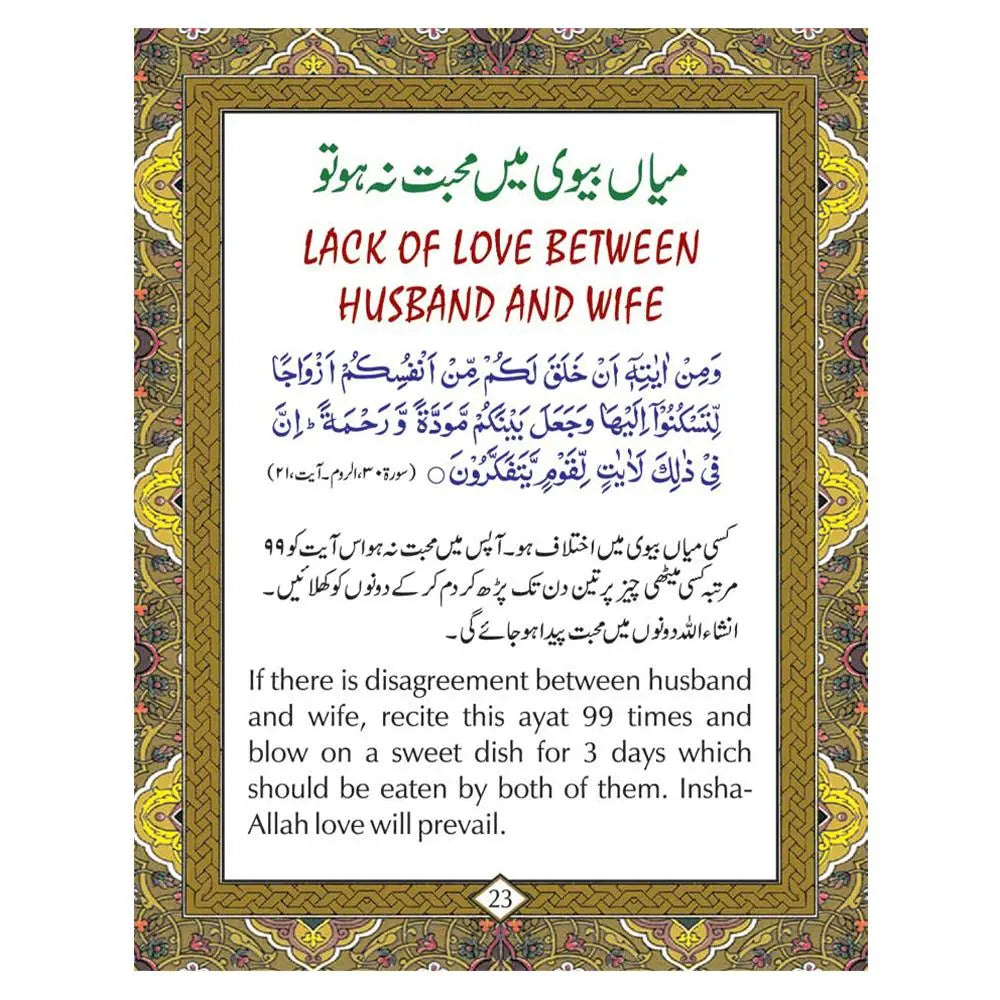 میاں بیوی میں محبت نہ ہو تو
LACK OF LOVE BETWEEN
HUSBAND AND WIFE
وَمِنْ اٰيٰتِهٖٓ اَنْ خَلَقَ لَكُمْ مِّنْ اَنْفُسِكُمْ اَزْوَاجًا
لِّتَسْكُنُوْٓا اِلَيْهَا وَجَعَلَ بَيْنَكُمْ مَّوَدَّةً وَّرَحْمَةً ؕ اِنَّ
فِيْ ذٰلِكَ لَاٰيٰتٍ لِّقَوْمٍ يَّتَفَكَّرُوْنَ ○ (سورۃ ۳۰، الروم۔ آیت، ۲۱)
کسی میاں بیوی میں اختلاف ہو۔ آپس میں محبت نہ ہو اس آیت کو ۹۹
مرتبہ کسی میٹھی چیز پر تین دن تک پڑھ کر دم کر کے دونوں کو کھلائیں۔
انشاء اللہ دونوں میں محبت پیدا ہو جائے گی۔
If there is disagreement between husband
and wife, recite this ayat 99 times and
blow on a sweet dish for 3 days which
should be eaten by both of them. Insha-
Allah love will prevail.
23